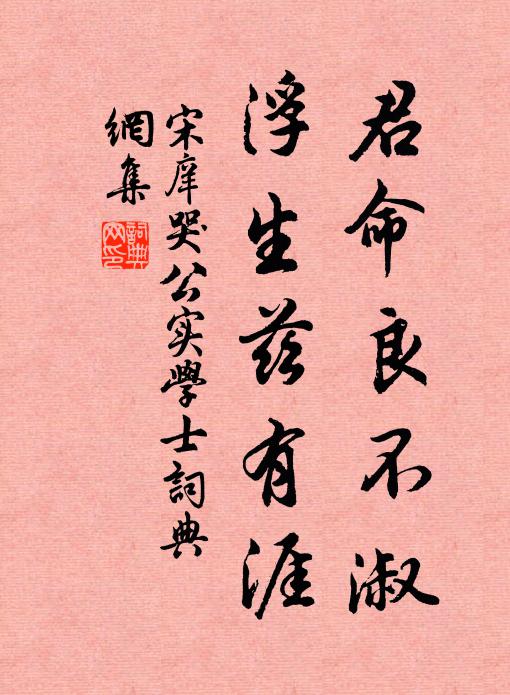 君命良不淑
浮生兹有涯
宋庠哭公实學士詞典
網集
詞典
网印